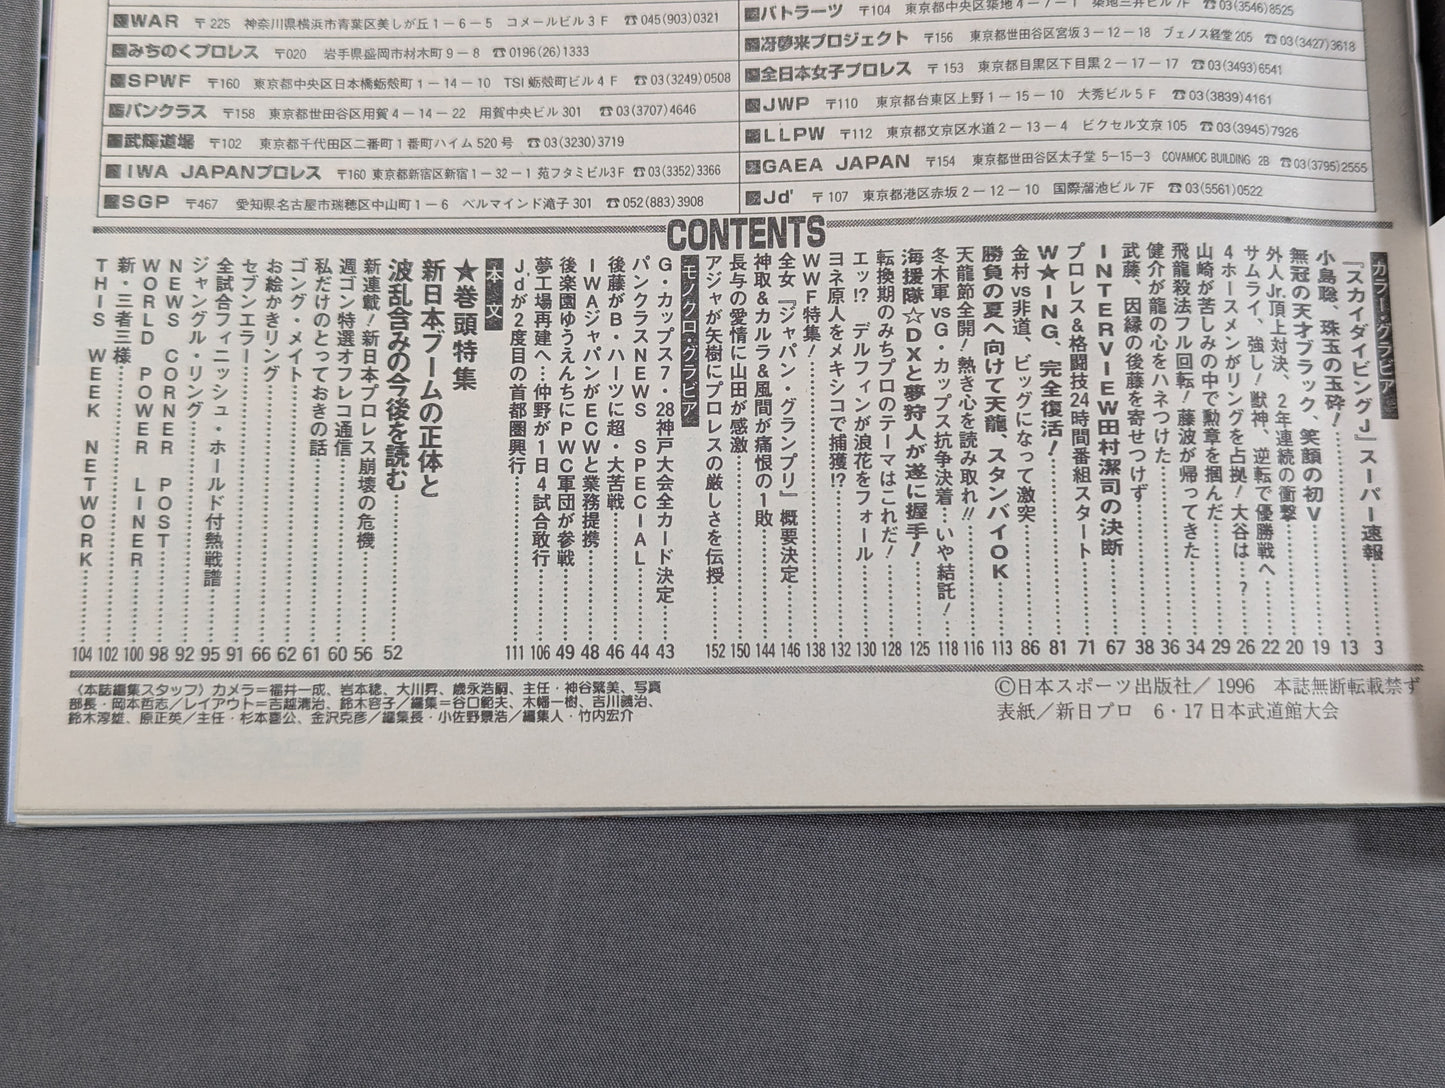 WAR 〒225 神奈川県横浜市青葉区美しが丘1－6－5 コメールビル3F ☎045(903)0321
みちのくプロレス 〒020 岩手県盛岡市材木町9－8 ☎0196(26)1333
SPWF 〒160 東京都中央区日本橋蛎殻町1－14－10 TSI蛎殻町ビル4F ☎03(3249)0508
パンクラス 〒158 東京都世田谷区用賀4－14－22 用賀中央ビル301 ☎03(3707)4646
武輝道場 〒102 東京都千代田区二番町1番町ハイム520号 ☎03(3230)3719
IWA JAPANプロレス 〒160 東京都新宿区新宿1－32－1 苑フタミビル3F ☎03(3352)3366
SGP 〒467 愛知県名古屋市瑞穂区中山町1－6 ベルマインド滝子301 ☎052(883)3908
バトラーツ 〒104 東京都中央区築地4－7－1 築地三井ビル7F ☎03(3546)8525
冴夢来プロジェクト 〒156 東京都世田谷区宮坂3－12－18 ブェノス経堂205 ☎03(3427)3618
全日本女子プロレス 〒153 東京都目黒区下目黒2－17－17 ☎03(3493)6541
JWP 〒110 東京都台東区上野1－15－10 大秀ビル5F ☎03(3839)4161
LLPW 〒112 東京都文京区水道2－13－4 ビクセル文京105 ☎03(3945)7926
GAEA JAPAN 〒154 東京都世田谷区太子堂 5-15-3 COVAMOC BUILDING 2B ☎03(3795)2555
Jd' 〒107 東京都港区赤坂2－12－10 国際溜池ビル7F ☎03(5561)0522
CONTENTS
カラー・グラビア
『スカイダイビングJ』スーパー速報 3
小島聡、珠玉の玉砕! 13
無冠の天才ブラック、笑顔の初V 19
外人Jr.頂上対決、2年連続の衝撃 20
サムライ、強し!獣神、逆転で優勝戦へ 22
4ホースメンがリングを占拠!大谷は…? 26
山崎が苦しみの中で勲章を掴んだ 29
飛龍殺法フル回転!藤波が帰ってきた 34
健介が龍の心をハネつけた 36
武藤、因縁の後藤を寄せつけず 38
INTERVIEW田村潔司の決断 67
プロレス&格闘技24時間番組スタート 71
W★ING、完全復活! 81
金村vs非道、ビッグになって激突 86
勝負の夏へ向けて天龍、スタンバイOK 113
天龍節全開!熱き心を読み取れ!! 116
冬木軍vsG・カップス抗争決着…いや結託! 118
海援隊☆DXと夢狩人が遂に握手! 125
転換期のみちプロのテーマはこれだ! 128
エッ!? デルフィンが浪花をフォール 130
ヨネ原人をメキシコで捕獲!? 132
WWF特集! 138
全女『ジャパン・グランプリ』概要決定 146
神取&カルラ&風間が痛恨の1敗 144
長与の愛情に山田が感激 150
アジャが矢樹にプロレスの厳しさを伝授 152
モノクロ・グラビア
G・カップス7・28神戸大会全カード決定 43
パンクラスNEWS SPECIAL 44
後藤がB・ハーツに超・大苦戦 46
IWAジャパンがECWと業務提携 48
後楽園ゆうえんちにPWC軍団が参戦 49
夢工場再建へ…仲野が1日4試合敢行 106
J'dが2度目の首都圏興行 111
本文
★巻頭特集
新日本ブームの正体と
波乱含みの今後を読む 52
新連載!新日本プロレス崩壊の危機 56
週ゴン特選オフレコ通信 60
私だけのとっておきの話 61
ゴング・メイト 62
お絵かきリング 66
セブンエラー 91
全試合フィニッシュ・ホールド付熱戦譜 95
ジャングル・リング 92
NEWS CORNER POST 98
WORLD POWER LINER 100
新・三者三様 102
THIS WEEK NETWORK 104
〈本誌編集スタッフ〉カメラ＝福井一成、岩本稔、大川昇、歳永浩嗣、主任・神谷繁美、写真
部長・岡本哲志／レイアウト＝吉越清治、鈴木容子／編集＝谷口範夫、木幡一樹、吉川義治、
鈴木淳雄、原正英／主任・杉本喜公、金沢克彦／編集長・小佐野景浩／編集人・竹内宏介
©日本スポーツ出版社／1996 本誌無断転載禁ず
表紙／新日プロ 6・17日本武道館大会